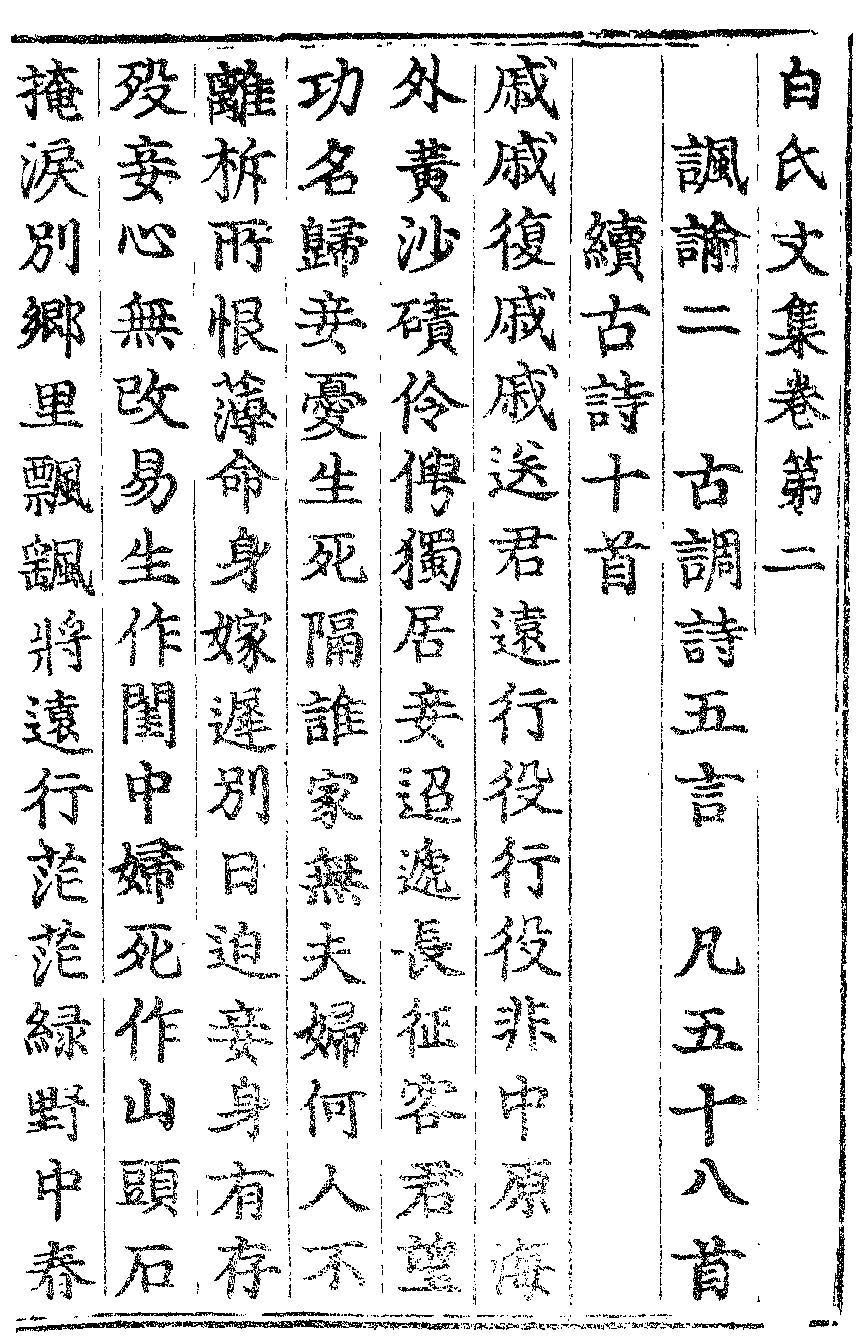 白氏文集卷第二
諷諭二　古調詩五言　凡五十八首
續古詩十首
戚戚復戚戚送君遠行役行役非中原海
外黃沙磧伶俜獨居妾迢遞長征客君望
功名歸妾憂生死隔誰家無夫婦何人不
離柝所恨薄命身嫁遲別日迫妾身有存
歿妾心無改易生作閨中婦死作山頭石
掩淚別鄉里飄颻將遠行茫茫緑野中春